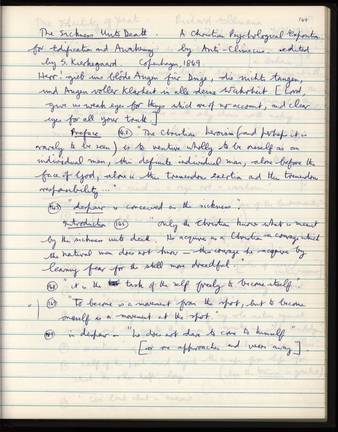 The Sickness Unto Death. A Christian Psychological Exposition
for Edification and Awakening by Anti-Climacus. edited
by S. Kierkegaard Copenhagen, 1849
Herr! gieb uns blöde Augen für Dinge, die nichts taugen,
und Augen voller Klarheit in alle deine Wahrheit [Lord,
give us weak eyes for things which are of no account, and clear
eyes for all your truth]
Preface The Christian heroism (and perhaps it is
rarely to be seen) is to venture wholly to be oneself as an
individual man, this definite individual man, alone before the
face of God, alone in this tremendous exertion and this tremendous
responsibility..."
"despair is conceived as the sickness".
Introduction "only the Christian knows what is meant
by the sickness unto death. He acquires as a Christian a courage which
the natural man does not know — this courage he acquires by
learning fear for the still more dreadful."
"it is the task of the self freely to become itself"
"To become is a movement from the spot, but to become
oneself is a movement at the spot."
in despair - "he does not dare to come to himself"
[or one approaches and veers away].